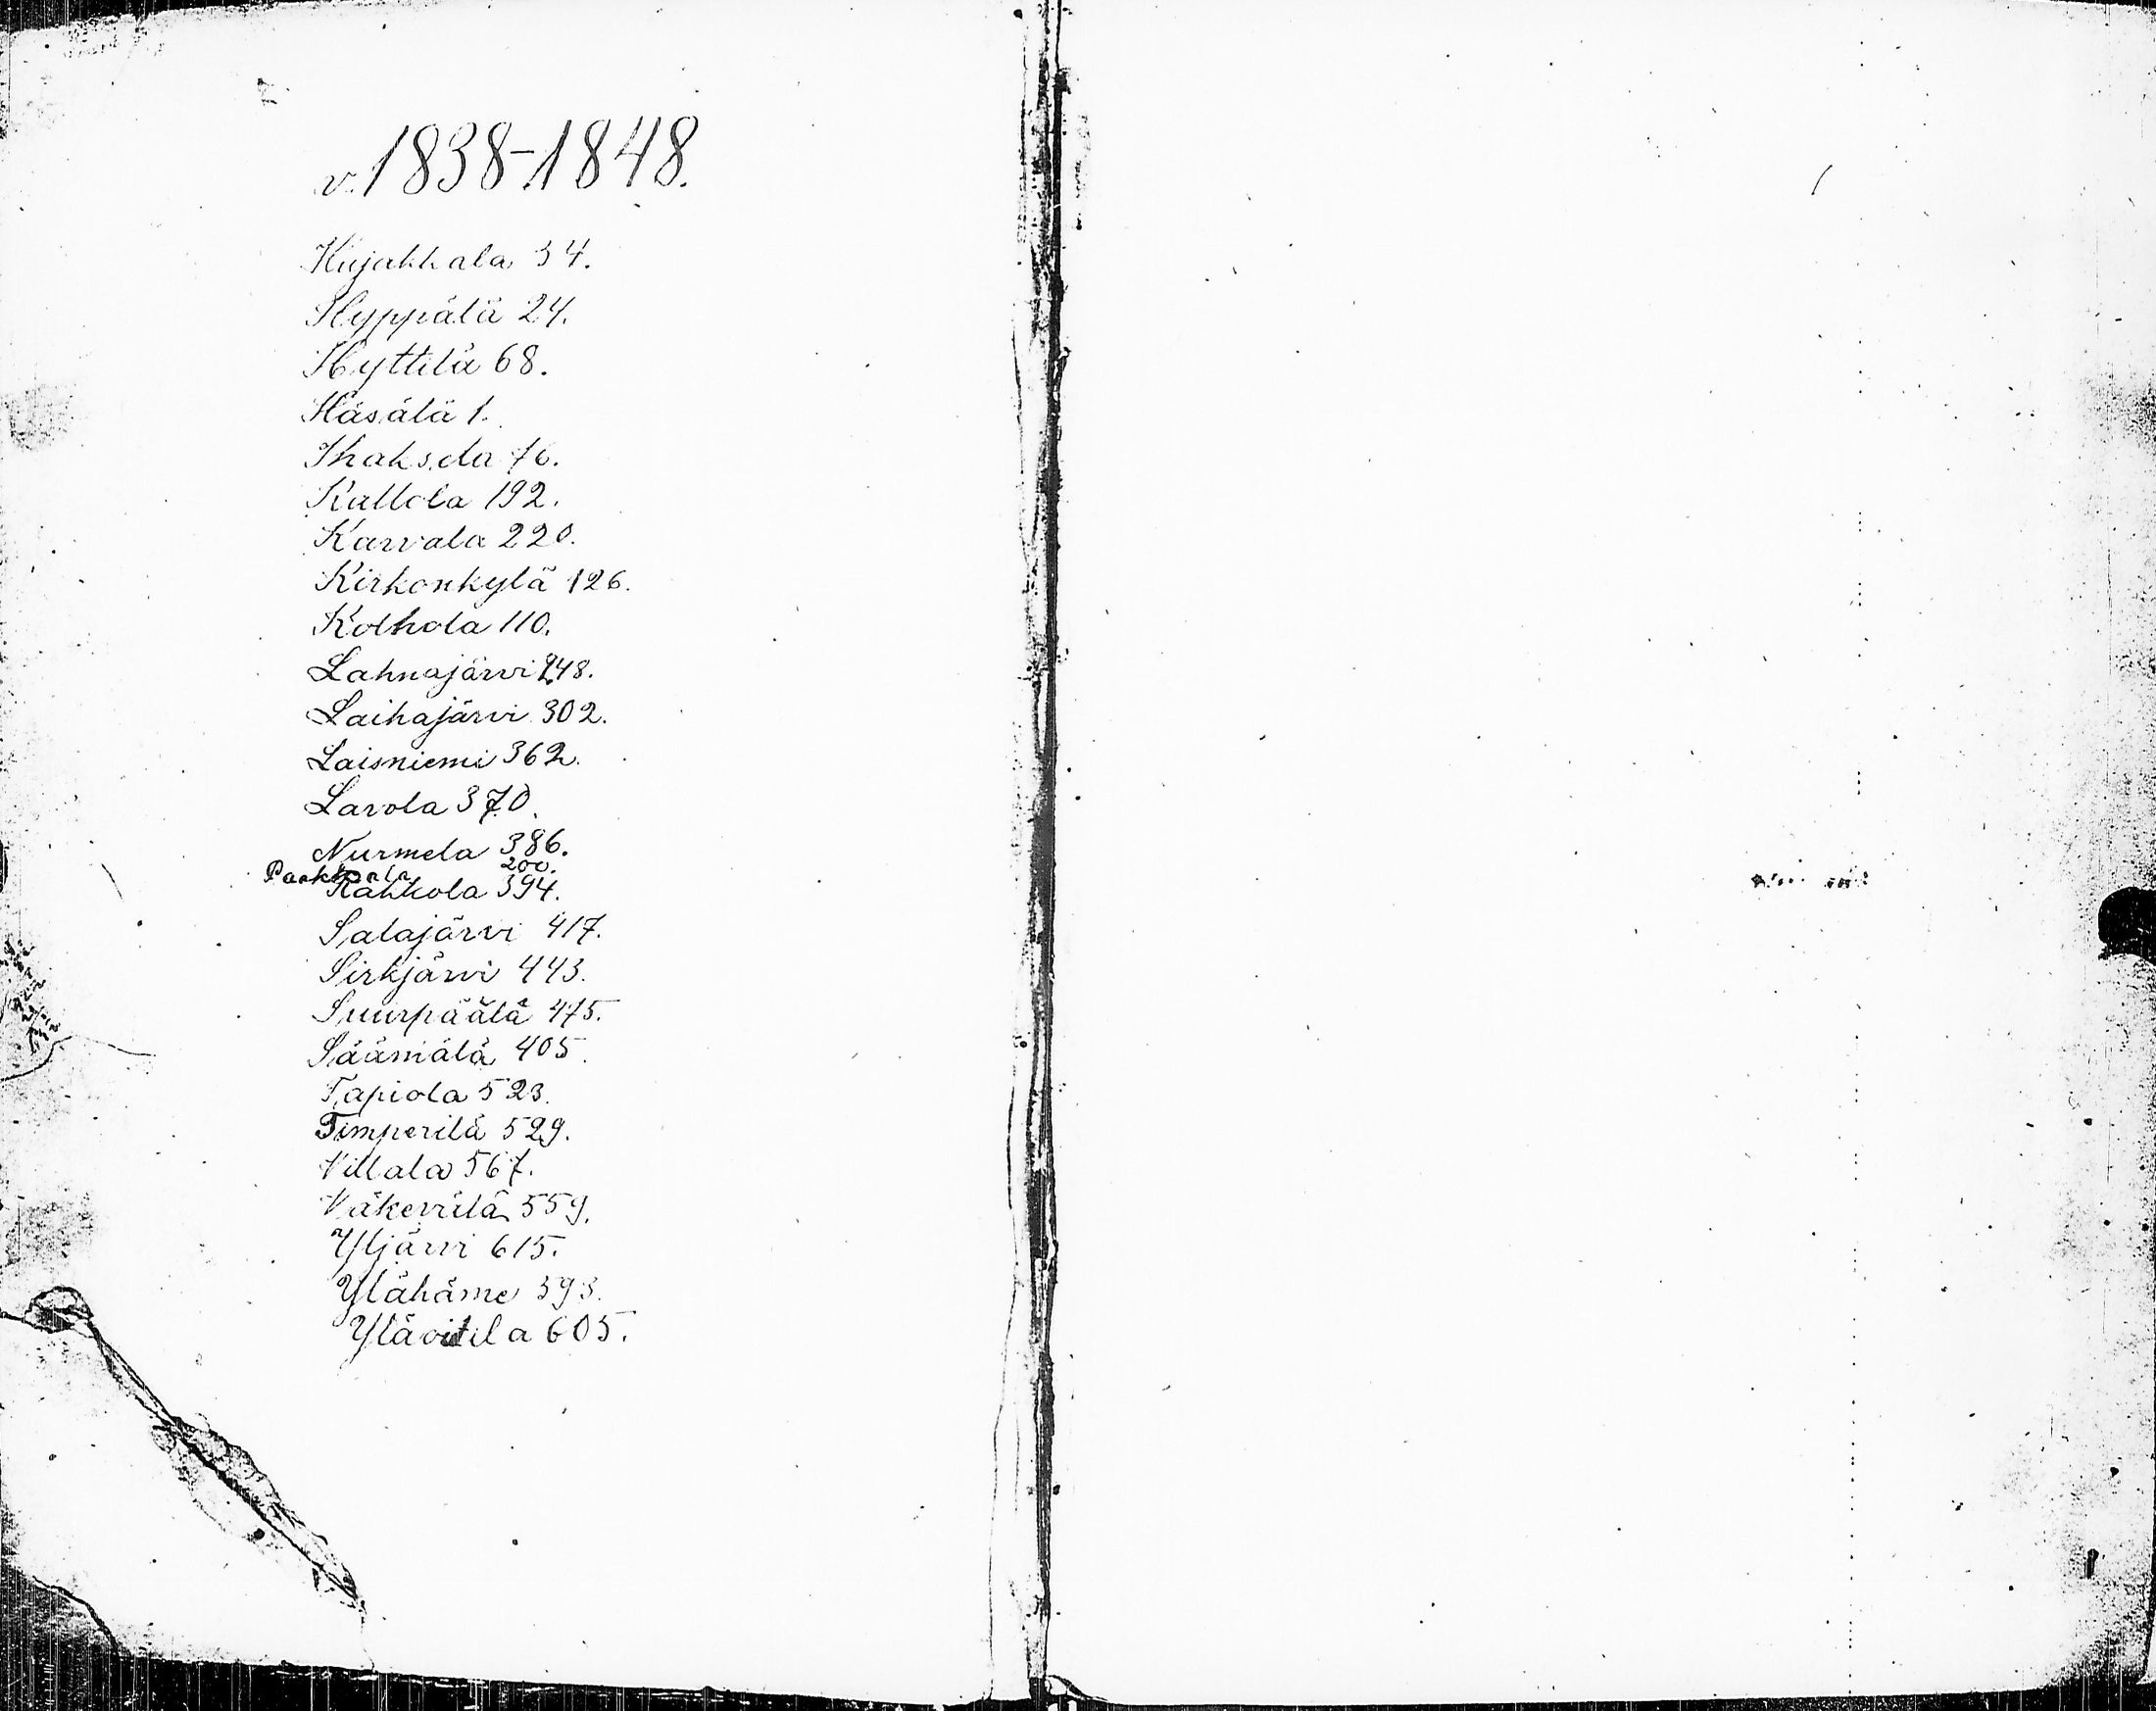 v. 1838-1848.
Kujakkala 34.
Hyppälä 24.
Hyttilä 68.
Häsälä 1.
Ihaksela 76.
Kallola 192.
Karvala 220.
Kirkonkylä 126.
Kolhola 110.
Lahnajärvi 248.
Laihajärvi 302.
Laisniemi 362.
Lavola 370.
Nurmela 386.
Paakkola 200.
Rahkola 394.
Salajärvi 417.
Sirkjärvi 443.
Suurpäälä 475.
Säämälä 405.
Tapiola 523.
Timperilä 529.
Villala 567.
Väkevälä 559.
Yljärvi 615.
Ylähäme 593.
Ylävitila 605.